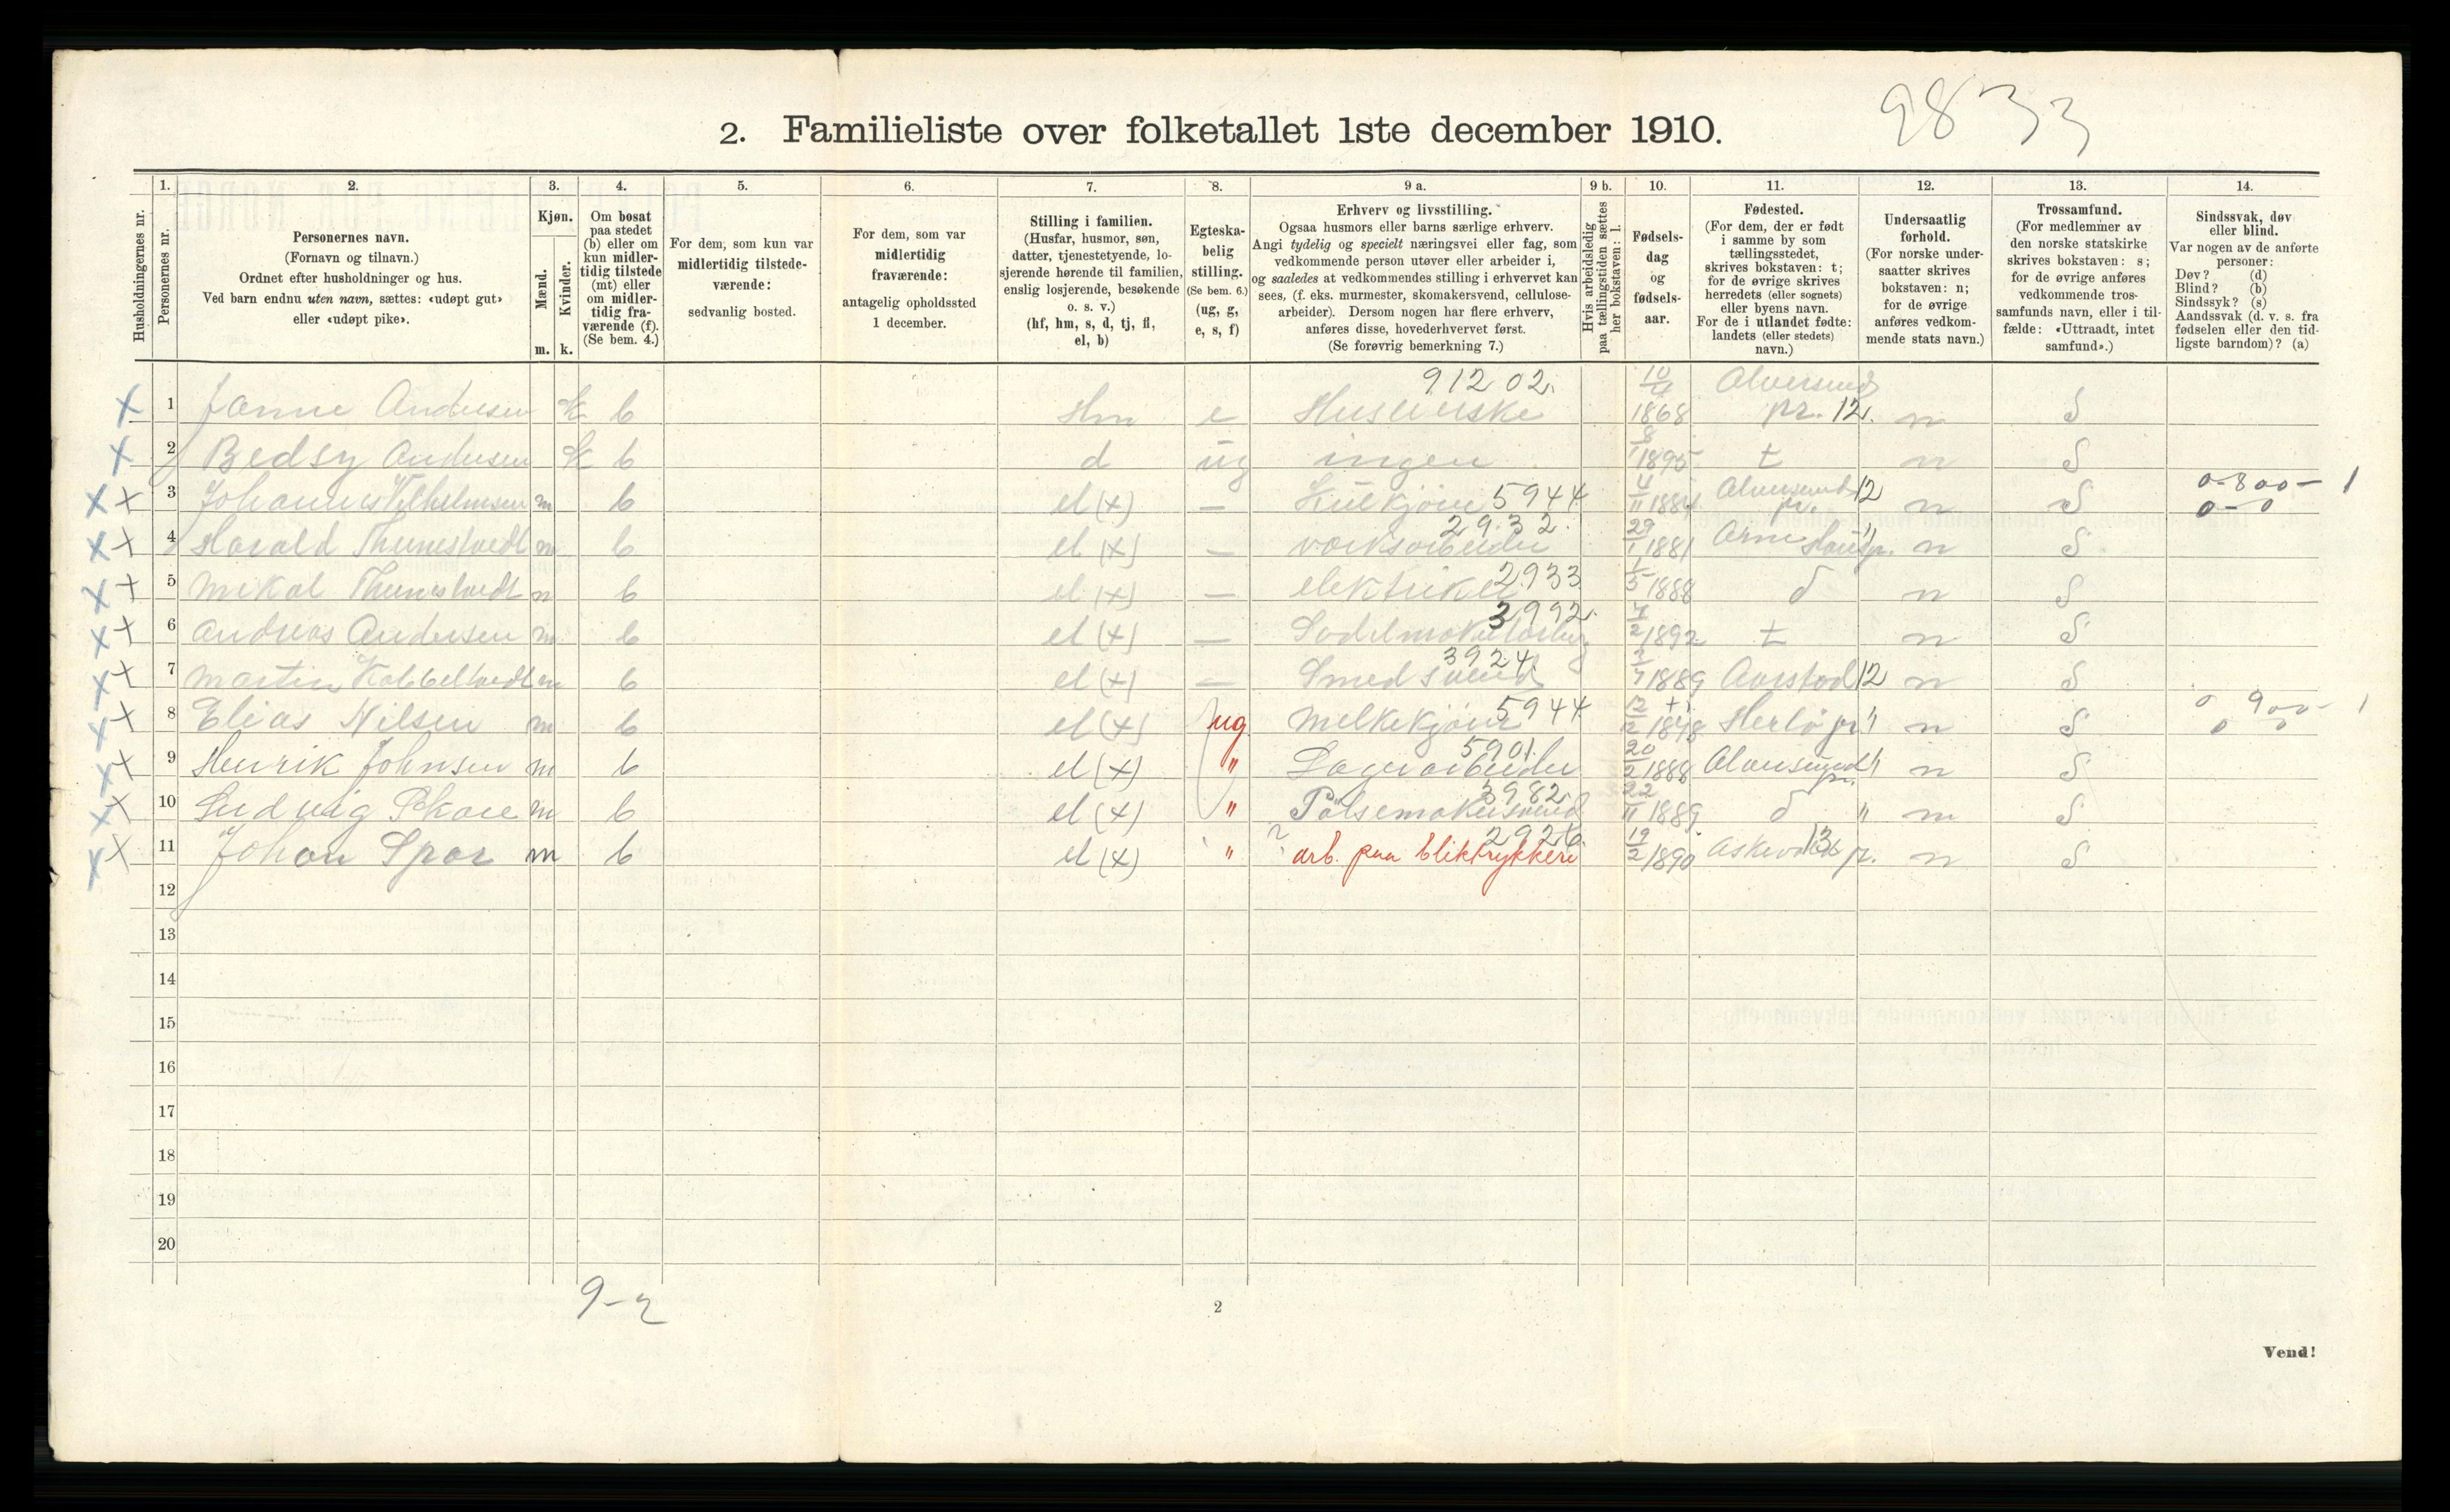 9833
2. Familieliste over folketallet 1ste december 1910.
Husholdningernes nr.
1. Personernes nr.
2. Personernes navn. (Fornavn og tilnavn.) Ordnet efter husholdninger og hus. Ved barn endnu uten navn, sættes: «udøpt gut» eller «udøpt pike».
3. Kjøn. Mænd. m. Kvinder. k.
4. Om bosat paa stedet (b) eller om kun midlertidig tilstede (mt) eller om midlertidig fraværende (f). (Se bem. 4.)
5. For dem, som kun var midlertidig tilstedeværende: sedvanlig bosted.
6. For dem, som var midlertidig fraværende: antagelig opholdssted 1 december.
7. Stilling i familien. (Husfar, husmor, søn, datter, tjenestetyende, losjerende hørende til familien, enslig losjerende, besøkende o. s. v.) (hf, hm, s, d, tj, fl, el, b)
8. Egteskabelig stilling. (Se bem. 6.) (ug, g, e, s, f)
9 a. Erhverv og livsstilling. Ogsaa husmors eller barns særlige erhverv. Angi tydelig og specielt næringsvei eller fag, som vedkommende person utøver eller arbeider i, og saaledes at vedkommendes stilling i erhvervet kan sees, (f. eks. murmester, skomakersvend, cellulosearbeider). Dersom nogen har flere erhverv, anføres disse, hovederhvervet først. (Se forøvrig bemerkning 7.)
9 b. Hvis arbeidsledig paa tællingstiden sættes her bokstaven: l.
10. Fødselsdag og fødselsaar.
11. Fødested. (For dem, der er født i samme by som tællingsstedet, skrives bokstaven: t; for de øvrige skrives herredets (eller sognets) eller byens navn. For de i utlandet fødte: landets (eller stedets) navn.)
12. Undersaatlig forhold. (For norske undersaatter skrives bokstaven: n; for de øvrige anføres vedkommende stats navn.)
13. Trossamfund. (For medlemmer av den norske statskirke skrives bokstaven: s; for de øvrige anføres vedkommende trossamfunds navn, eller i tilfælde: «Uttraadt, intet samfund».)
14. Sindssvak, døv eller blind. Var nogen av de anførte personer: Døv? (d) Blind? (b) Sindssyk? (s) Aandssvak (d. v. s. fra fødselen eller den tidligste barndom)? (a)
X 1 Janne Andersen k b Hm e 91202. 1868 Alversund pr. 12. n S
X 2 Bedsy Andersen k b d ug ingen 8/1 1895 t n S
X X 3 Johannes Vilhelmsen m b el (X) — Kulkjører 5944 4/11 1884 Alversund pr. 12 n S 0-800- 1 0-0
X X 4 Harald Thunestvedt m b el (X) — verksarbeider 2932. 29/1 1881 Arne Haus pr. " n S
X X 5 Mikal Thunestvedt m b el (X) — elektriker 2933 1/5 1888 d n S
X X 6 Andreas Andersen m b el (X) — 3992. 1892 t n S
X X 7 Martin Kobbeltvedt m b el (X) — Smedsvend 3924 1889 Aarstad 12 n S
X X 8 Elias Nilsen m b el (X) ug Melkekjører 5944 12/2 1848 Herlö pr. " n S 0 900- 1 0 0
X X 9 Henrik Johnsen m b el (X) " Lagerarbeider 5901. 20/2 1888 Alversund pr. " n S
X X 10 Ludvig Skare m b el (X) " Pölsemakersvend 3982. 22/11 1889 d " n S
X X 11 Johan Spar m b el (X) " ? arb. paa bliktrykkeri 2926. 19/2 1890 Askevold 13 pr. n S
12
13
14
15
16
17
18
19
20
9-2
2
Vend!